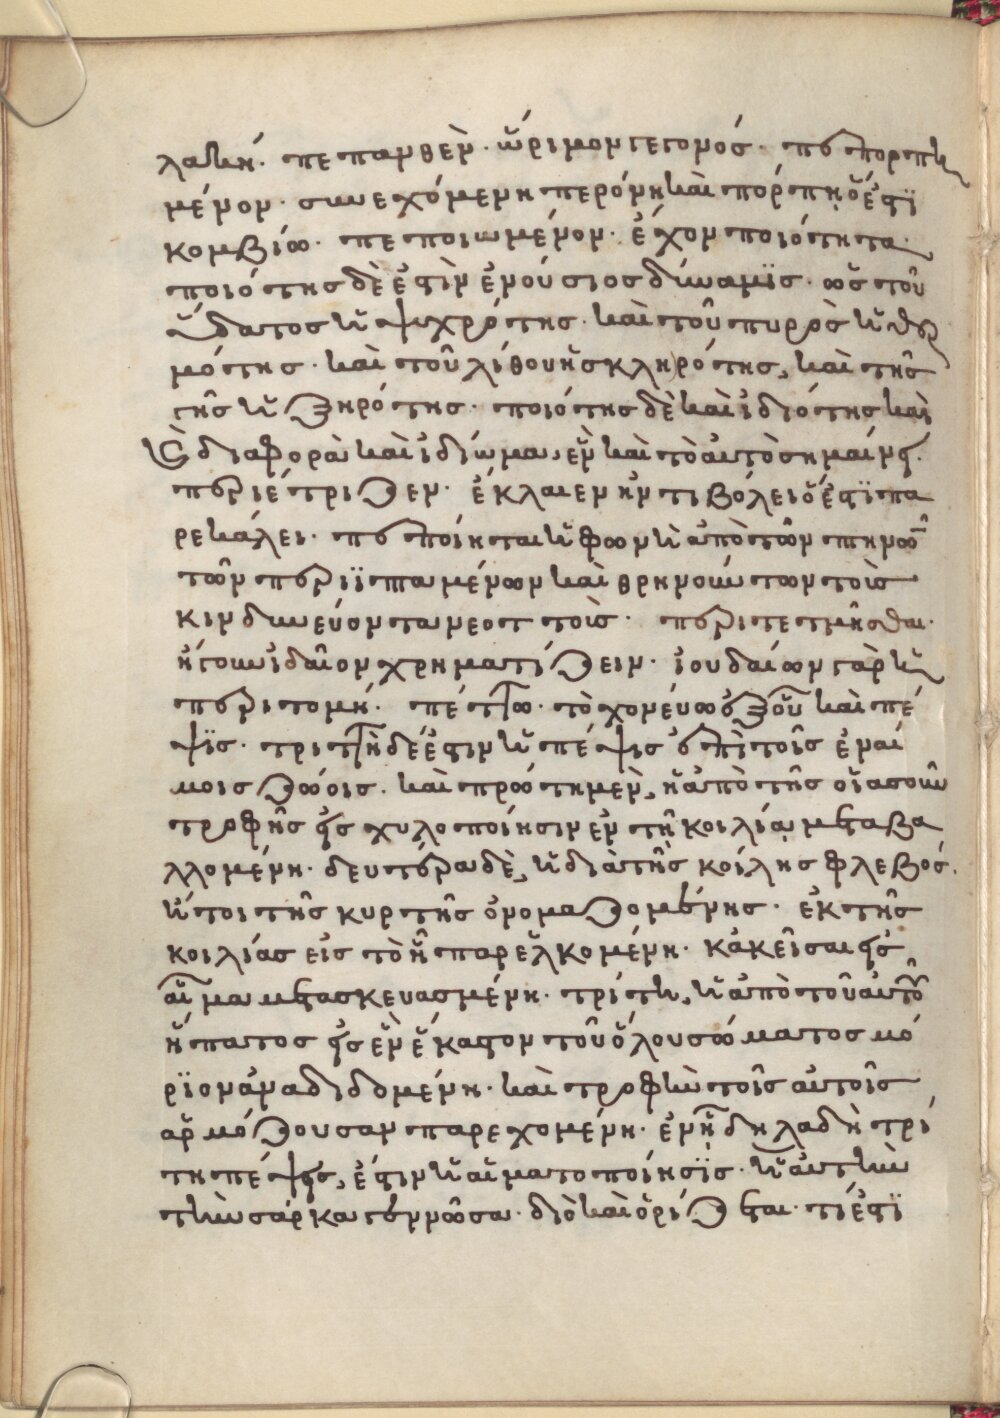 λαβή. πεπανθέν. ὥριμον γεγονός. πεπορπη
μένον. συνεχόμενη περόνη καὶ πόρπῃ, ὅ ἐστϊ
κομβίω. πεποιωμένον. ἔχον ποιότητα.
ποιότης δὲ ἐστὶν ἐνούσιος δύναμϊς. ὡς τοῦ
ὕδατος ἡ ψυχρότης. καὶ τοῦ πυρὸς ἡ θερ
μότης. καὶ τοῦ λίθου ἡ σκληρότης, καὶ τῆς
γῆς ἡ ξηρότης. ποιότης δὲ καὶ ἰδιότης καὶ
διαφορὰ καὶ ἰδίωμα, ἓν καὶ τὸ αὐτὸ σημαίνει.
περιέτριζεν. ἔκλαιεν ἠντιβόλει ὅ ἐστϊ πα
ρεκάλει. πεποίηται ἡ φωνὴ ἀπὸ τῶν πτηνῶν
τῶν περιϊπταμένων καὶ θρηνούντων τοῖς
κινδυνεύουσι νεοττοῖς. περιτετμῆσθαι.
ἤγουν ἰουδαῖον χρηματίζειν. ἰουδαίων γὰρ ἡ
περιτομή. πέττω. τὸ χονεύω ἐξ οὗ καὶ πέ
ψϊς. τριττὴ δέ ἐστιν ἡ πέψις ἐπὶ τοῖς ἐναί
μοις ζώοις. καὶ πρώτη μὲν, ἡ ἀπὸ τῆς οἱασοῦν
τροφῆς εἰς χυλοποίησιν ἐν τῇ κοιλίᾳ μεταβα
λλομένη. δευτέρα δὲ, ἡ διὰ τῆς κοίλης φλεβός.
ἤτοι τῆς κυρτῆς ὀνομαζομένης. ἐκ τῆς
κοιλίας εἰς τὸ ἧπαρ ἑλκομένη. κἀκεῖσαι εἰς
αἷμα μετασκευασμένη. τρίτη, ἡ ἀπὸ τοῦ αὐτοῦ
ἥπατος εἰς ἓν ἕκαστον τοῦ ὅλου σώματος μό
ρϊον ἀναδιδομένη. καὶ τροφὴν τοῖς αὐτοῖς
ἁρμόζουσαν παρεχομένη. ἐν ᾗ δηλαδὴ τρί
τη πέψει, ἐστιν ἡ αἱματοποίησϊς. ἡ αὐτὴν
τὴν σάρκα γεννῶσα. διὸ καὶ ὁρίζεται. τί ἐστϊ